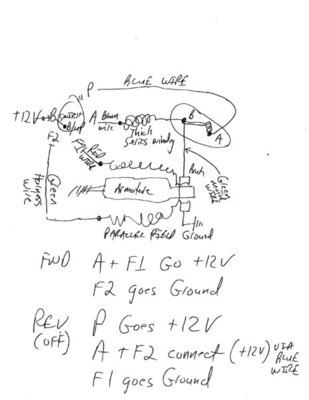 BLUE WIRE
P
+12V
B
SWITCH
A
Brown
B
Thick
Series winding
A
F1 Red
WIRE
F2
Green
Harness
WIRE
Armature
Green
WIRE
PARALLEL FIELD
Ground
FWD A + F1 Go +12V
F2 goes Ground
REV P Goes +12V
(OFF) A + F2 connect (+12V) VIA
BLUE
WIRE
F1 goes Ground